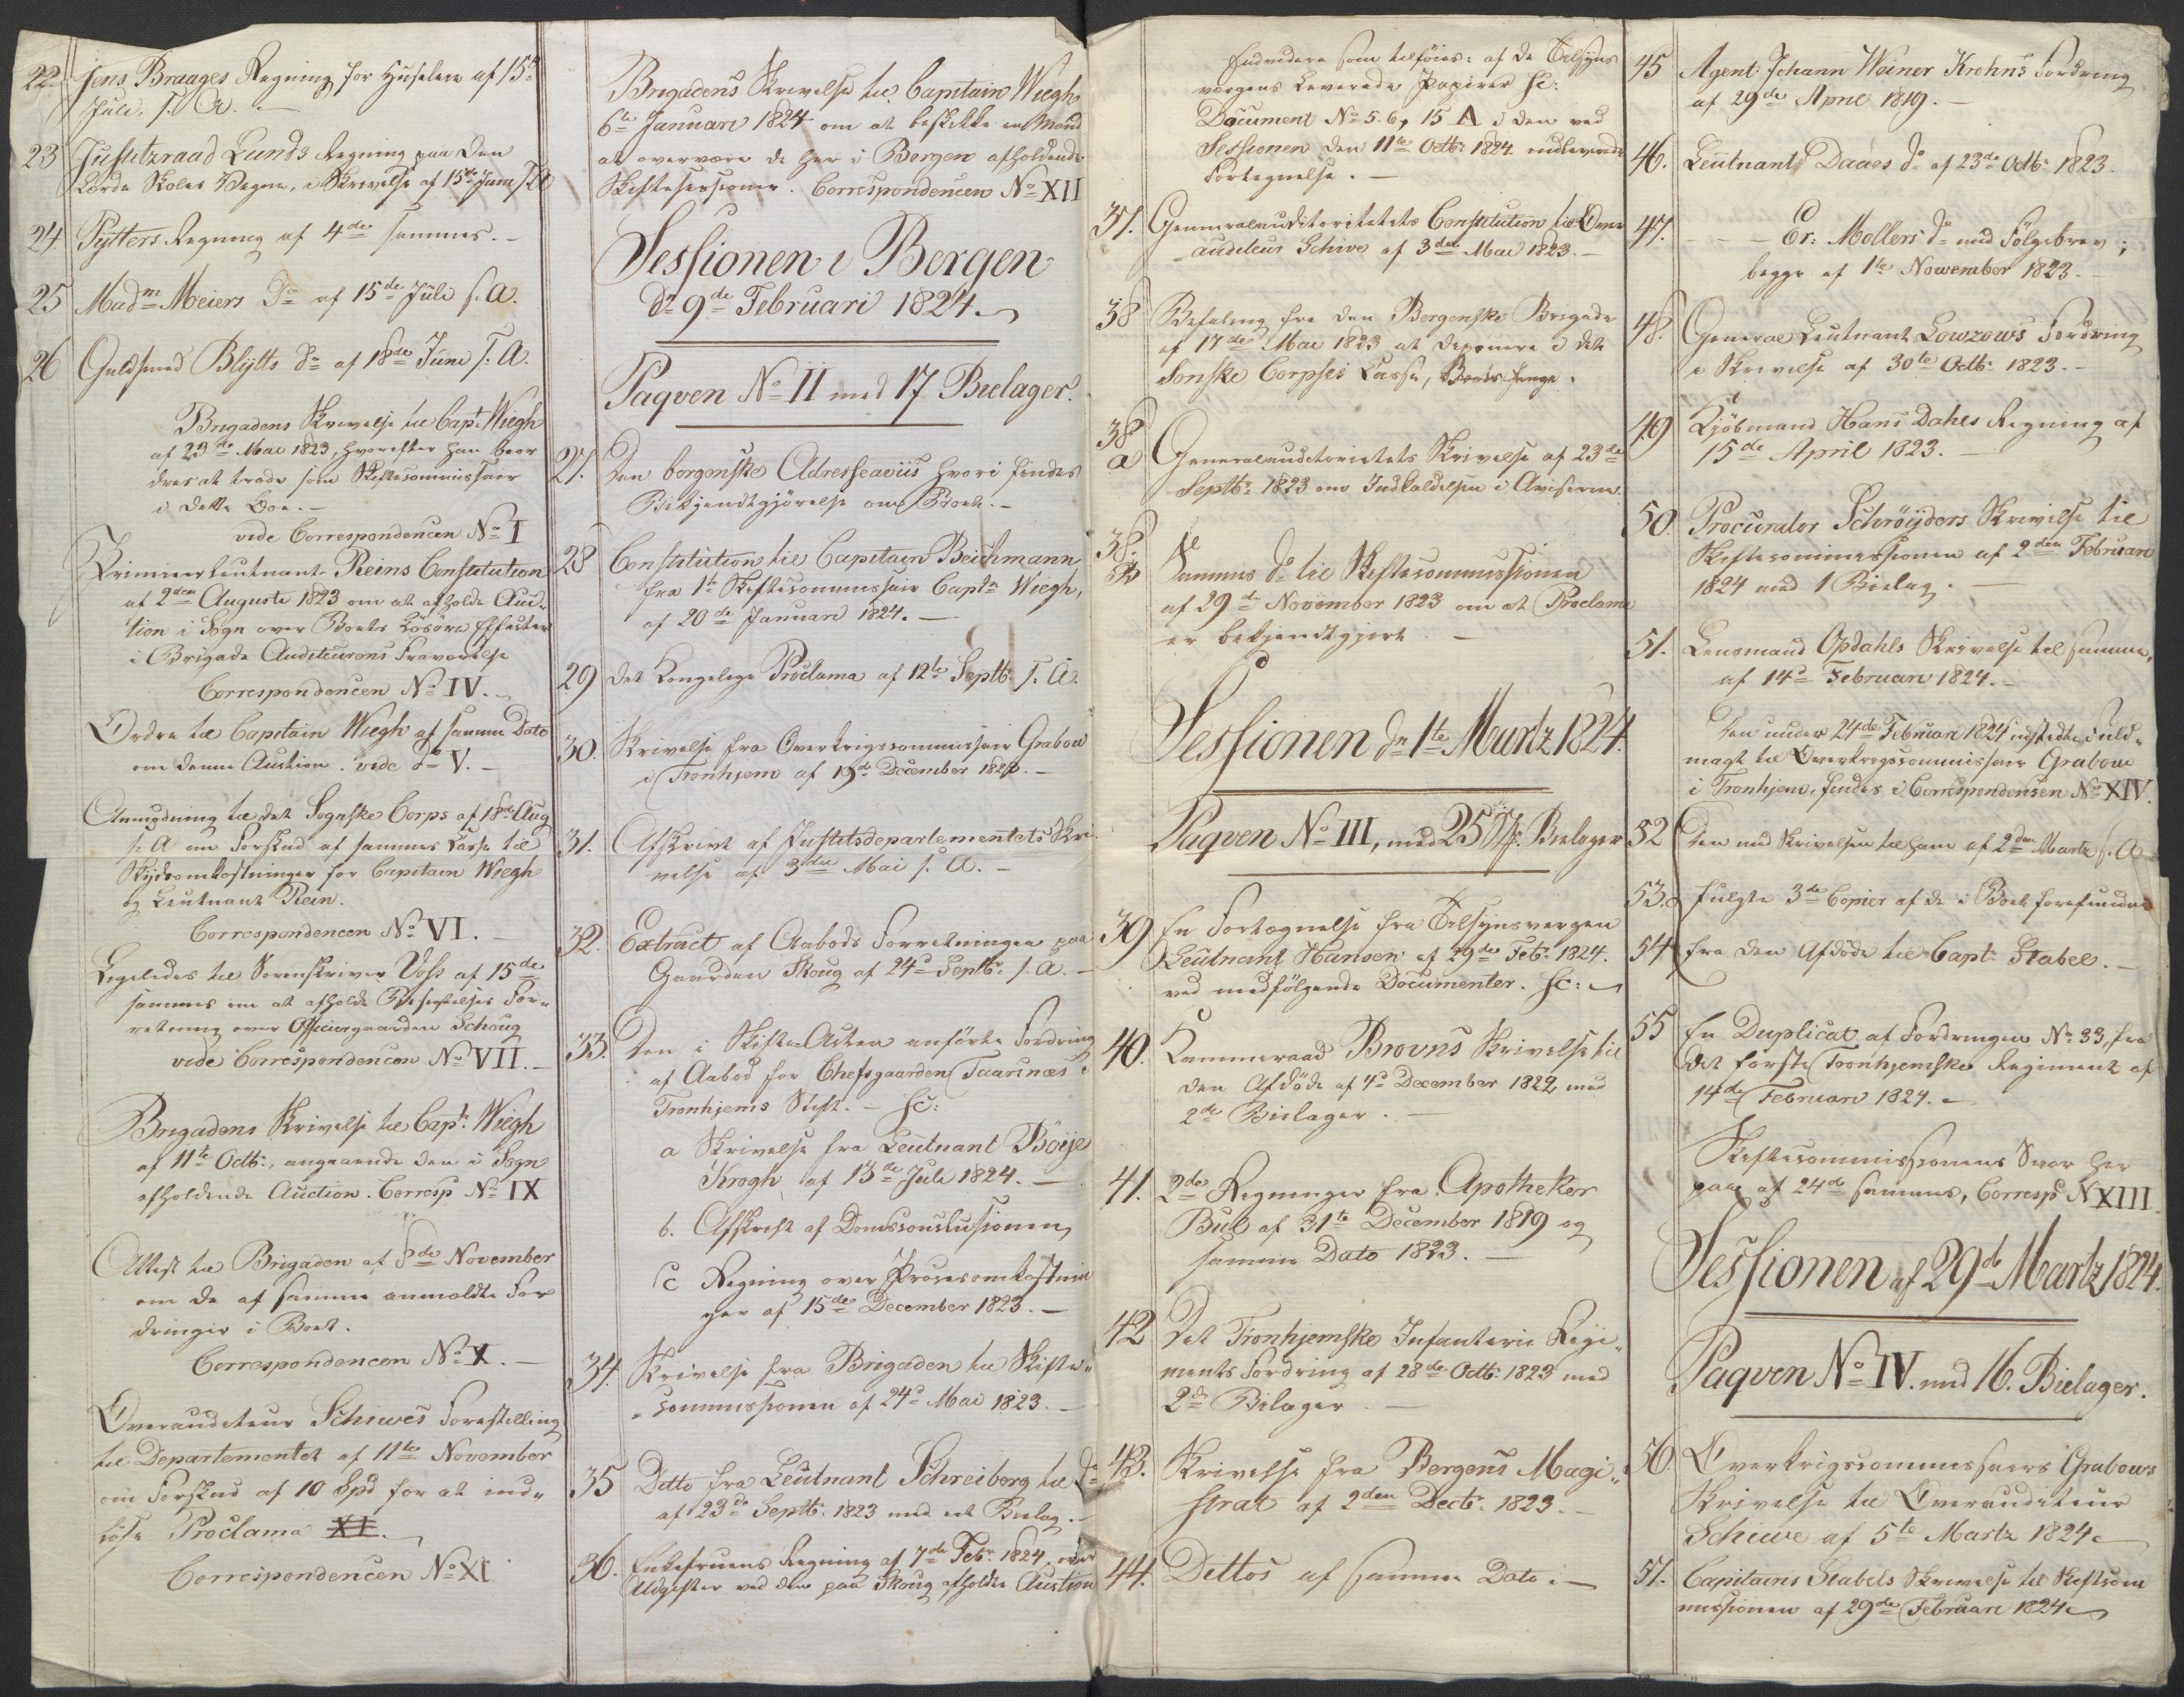 22. Jens Braages Regning for Huusleie af 15de
Juli s. A.
23 Justitzraad Lunds Regning paa den
Lærde Skoles Vegne, i Skrivelse af 15de Juni s. A.
24. Pytters Regning af 4de sammes.
25 Madm Meiers do af 15de Juli s. A.
26 Guldsmed Blytts do af 18de Juni s. A.
Brigadens Skrivelse til Capt. Wiegh
af 23de Mai 1823, hvorefter han beor
dres at træde som Skiftecommissair
i dette Boe.
vide Correspondencen No I
Premierleutnant Reins Constitution
af 2den Auguste 1823 om at afholde Auc-
tion i Sogn over Boets Løsøre Effecter
i Brigade Auditeurens Fraværelse
Correspondencen No IV.
Ordre til Capitain Wiegh af samme Dato
om denne Auction. vide do V.
Anmodning til det Sognske Corps af 18de Aug
s. A om Forskud af sammes Casse til
Skydsomkostninger for Capitain Wiegh
og Leutnant Rein.
Correspondencen No VI.
Ligeledes til Sorenskriver Voss af 15de
sammes om at afholde Besigtelses For-
retning over Officiergaarden Schoug
vide Correspondencen No VII.
Brigadens Skrivelse til Capt. Wiegh
af 11te Octbr, angaaende den i Sogn
afholdende Auction. Corresp No IX
Attest til Brigaden af 8de November
om de af samme anmeldte For
dringer i Boet.
Correspondencen No X.
Overauditeur Schiwes Forestilling
til Departementet af 11te November
om Forskud af 10 Spd for at ind-
løse Proclama XI.
Correspondencen No XI
Brigadens Skrivelse til Capitain Wiegh
6te Januari 1824 om at beskikke en Mand
at overvære de her i Bergen afholdende
Skiftesessioner. Correspondencen No XII
Sessionen i Bergen
dn 9de Februari 1824.
Paqven No II med 17 Bielager.
27. Den bergenske Adresseaviis hvori findes
Bekjendtgjørelse om Boet.
28 Constitution til Capitain Beichmann
fra 1te Skiftecommissair Captn Wiegh,
af 20de Januari 1824.
29 Det Kongelige Proclama af 12te Septbr s. A.
30. Skrivelse fra Overkrigscommissair Grabow
i Tronhjem af 19de December 1823.
31. Afskrivt af Justitsdepartementets Skri
velse af 3die Mai s. A.
32. Extract af Aabods Forretningen paa
Gaarden Skoug af 24de Septbr s. A.
33. Den i Skifte Acten anførte Fordring
af Aabod for Chefsgaarden Faarenæs i
Tronhjems Stift. Sc:
a Skrivelse fra Leutnant Böije
Krogh af 13de Juli 1824.
b. Afskrift af Domsconclusionen
c Regning over Procesomkostnin
ger af 15de December 1823.
34. Skrivelse fra Brigaden til Skifte-
commissionen af 24de Mai 1823.
35 Ditto fra Leutnant Schreiberg til do
af 23de Septbr 1823 med et Bielag.
36. Enkefruens Regning af 7de Febr 1824, over
Udgifter ved den paa Skoug afholdte Auction
Endvidere som tilføies: af de Tilsyns
værgens Leverede Papirer Sc:
Document No 5. 6, 15 A i den ved
Sessionen den 11te Octbr 1824 indleverede
Fortegnelse.
37. Generalauditoritetets Constitution til Over
auditeur Schive af 3die Mai 1823.
38 Befaling fra den Bergenske Brigade
af 17de Mai 1823 at deponere i det
Sonske Corpses Casse, Boets Penge.
38 a Generalauditoritetets Skrivelse af 23de
Septbr 1823 om Indkaldelsen i Aviserne.
38. b Sammes do til Skiftecommissionen
af 29de November 1823 om at Proclama
er bekjendtgjort.
Sessionen dn 1te Martz 1824.
Paqven No III, med 25 Bielager
39 En Fortegnelse fra Tilsynsvergen
Leutnant Hansen af 29de Febr 1824.
ved medfølgende Documenter. Sc:
40. Kammeraad Brovns Skrivelse til
den Afdøde af 4de December 1822 med
2de Bielager.
41. 2de Regninger fra Apotheker
Bull af 31te December 1819 og
samme Dato 1823.
42 Det Tronhjemske Infanterie Regi-
ments Fordring af 28de Octbr 1823 med
2de Bilager.
43. Skrivelse fra Bergens Magi-
strat af 2den Decbr 1823.
44. Dittos af samme Dato
45 Agent Johann Weiner Krohns Fordring
af 29de April 1819.
46. Leutnant Daaes do af 23de Octbr 1823.
47. Er: Mollers do med Følgebrev;
begge af 1te November 1823.
48. General Leutnant Lowzows Fordring
i Skrivelse af 30te Octbr 1823.
49 Kjøbmand Hans Dahls Regning af
15de April 1823.
50. Procurator Schrøijders Skrivelse til
Skiftecommissionen af 2den Februari
1824 med 1 Bielag.
51. Lensmand Opdahls Skrivelse til samme,
af 14de Februari 1824.
Den under 24de Februari 1824 udstedte Fuld-
magt til Overkrigscommissair Grabow
i Tronhjem, findes i Correspondensen No XIV.
52 Den med Skrivelsen til ham af 2den Martz s. A
53. fulgte 3de Copier af de i Boet forefundne
54 fra den Afdøde til Capt. Stabel.
55 En Duplicat af Fordringen No 33, fra
det første Tronhjemske Regiment af
14de Februari 1824.
Skiftecommissionens Svar her
paa af 24de sammes, Corresp No XIII.
Sessionen af 29de Martz 1824.
Paqven No IV. med 16. Bielager.
56. Overkrigscommissairs Grabows
Skrivelse til Overauditeur
Schiwe af 5te Martz 1824
57. Capitains Stabels Skrivelse til Skiftecom
missionen af 29de Februari 1824